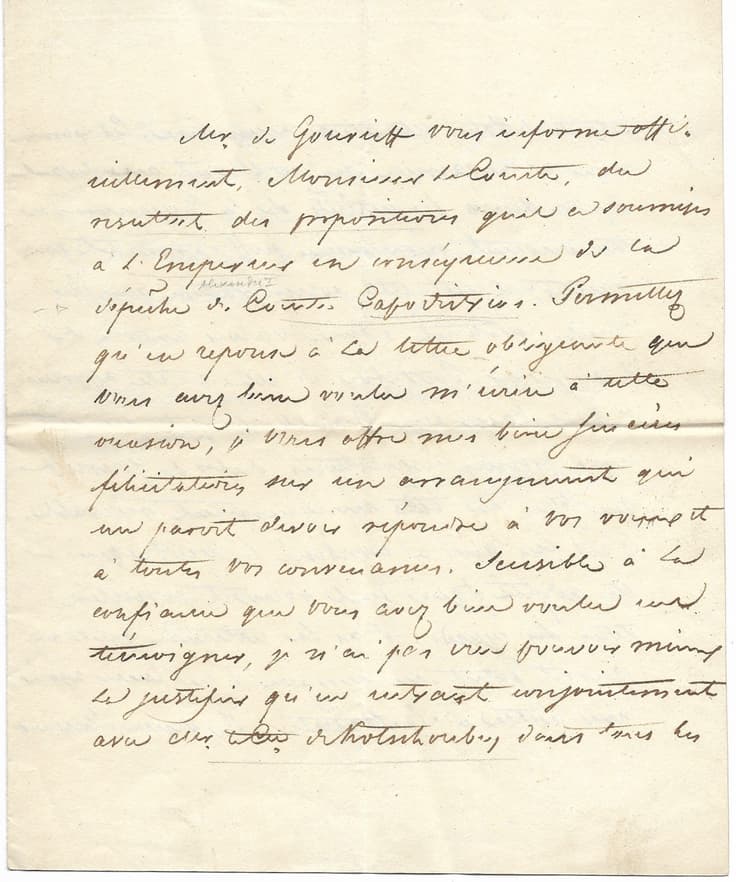 Mr. de Gourieff vous informe offi-
ciellement, Monsieur le Comte, du
resultat des propositions qu'il a soumises
à l'Empereur en conséquence de la
Alexandre I
dépêche de Comte Capodistrias. Permettez
qu'en reponse à la lettre obligeante que
vous avez bien voulu m'écrire à cette
occasion, je vous offre mes bien sincères
félicitations sur un arrangement qui
me paroit devoir répondre à vos vœux et
à toutes vos convenances. Sensible à la
confiance que vous avez bien voulu me
témoigner, je n'ai pas cru pouvoir mieux
la justifier qu'en entrant conjointement
avec Mr. le Cte de Kotschoubey dans tous les